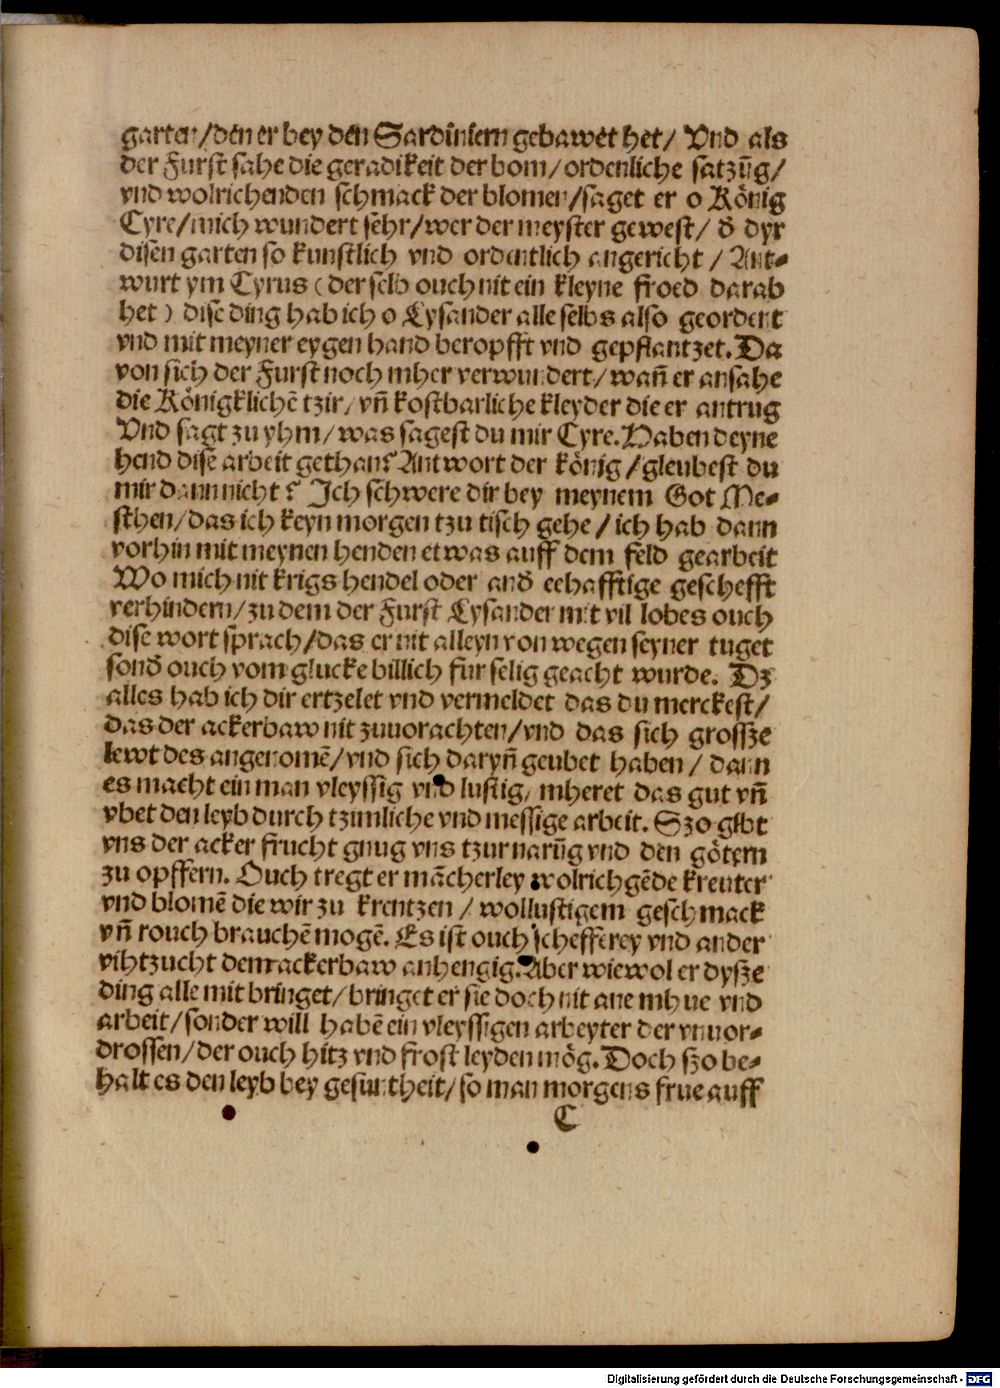 garten/den er bey den Sardiniern gebawet het/ Vnd als
der Furst sahe die geradikeit der bom/ ordenliche satzūg/
vnd wolrichenden schmack der blomen/saget er o König
Cyre/mich wundert sehr/wer der meyster gewest/ d̄ dyr
disen garten so kunstlich vnd ordentlich angericht / Ant⸗
wurt ym Cyrus (der selb ouch nit ein kleyne froed darab
het) dise ding hab ich o Lysander alle selbs also geordent
vnd mit meyner eygen hand beropfft vnd gepflantzet. Da
von sich der Furst noch mher verwundert/ wañ er ansahe
die Königklichē tzir/ vñ kostbarliche kleyder die er antrug
Vnd sagt zu yhm/ was sagest du mir Cyre. Haben deyne
hend dise arbeit gethan? Antwort der könig/gleubest du
mir dann nicht? Ich schwere dir bey meynem Got Me⸗
sthen/das ich keyn morgen tzu tisch gehe/ ich hab dann
vorhin mit meynen henden etwas auff dem feld gearbeit
Wo mich nit krigs hendel oder and̄ eehafftige geschefft
verhindern/ zu dem der Furst Lysander mit vil lobes ouch
dise wort sprach/das er nit alleyn von wegen seyner tuget
sond̄ ouch vom glucke billich fur selig geacht wurde. Dz
alles hab ich dir ertzelet vnd vermeldet das du merckest/
das der ackerbaw nit zuuorachten/vnd das sich grossze
lewt des angenomē/vnd sich daryñ geubet haben/ dann
es macht ein man vleyssig vnd lustig/ mheret das gut vñ
vbet den leyb durch tzimliche vnd messige arbeit. Szo gibt
vns der acker frucht gnug vns tzur narūg vnd den götern
zu opffern. Ouch tregt er mācherley wolrichgēde kreuter
vnd blomē die wir zu krentzen / wollustigem geschmack
vñ rouch brauchē mogē. Es ist ouch schefferey vnd ander
vihtzucht dem ackerbaw anhengig. Aber wiewol er dysze
ding alle mit bringet/ bringet er sie doch nit ane mhue vnd
arbeit/sonder will habē ein vleyssigen arbeyter der vnuor⸗
drossen/der ouch hitz vnd frost leyden mög. Doch szo be⸗
halt es den leyb bey gesuntheit/ so man morgens frue auff
C
Digitalisierung gefördert durch die Deutsche Forschungsgemeinschaft - DFG